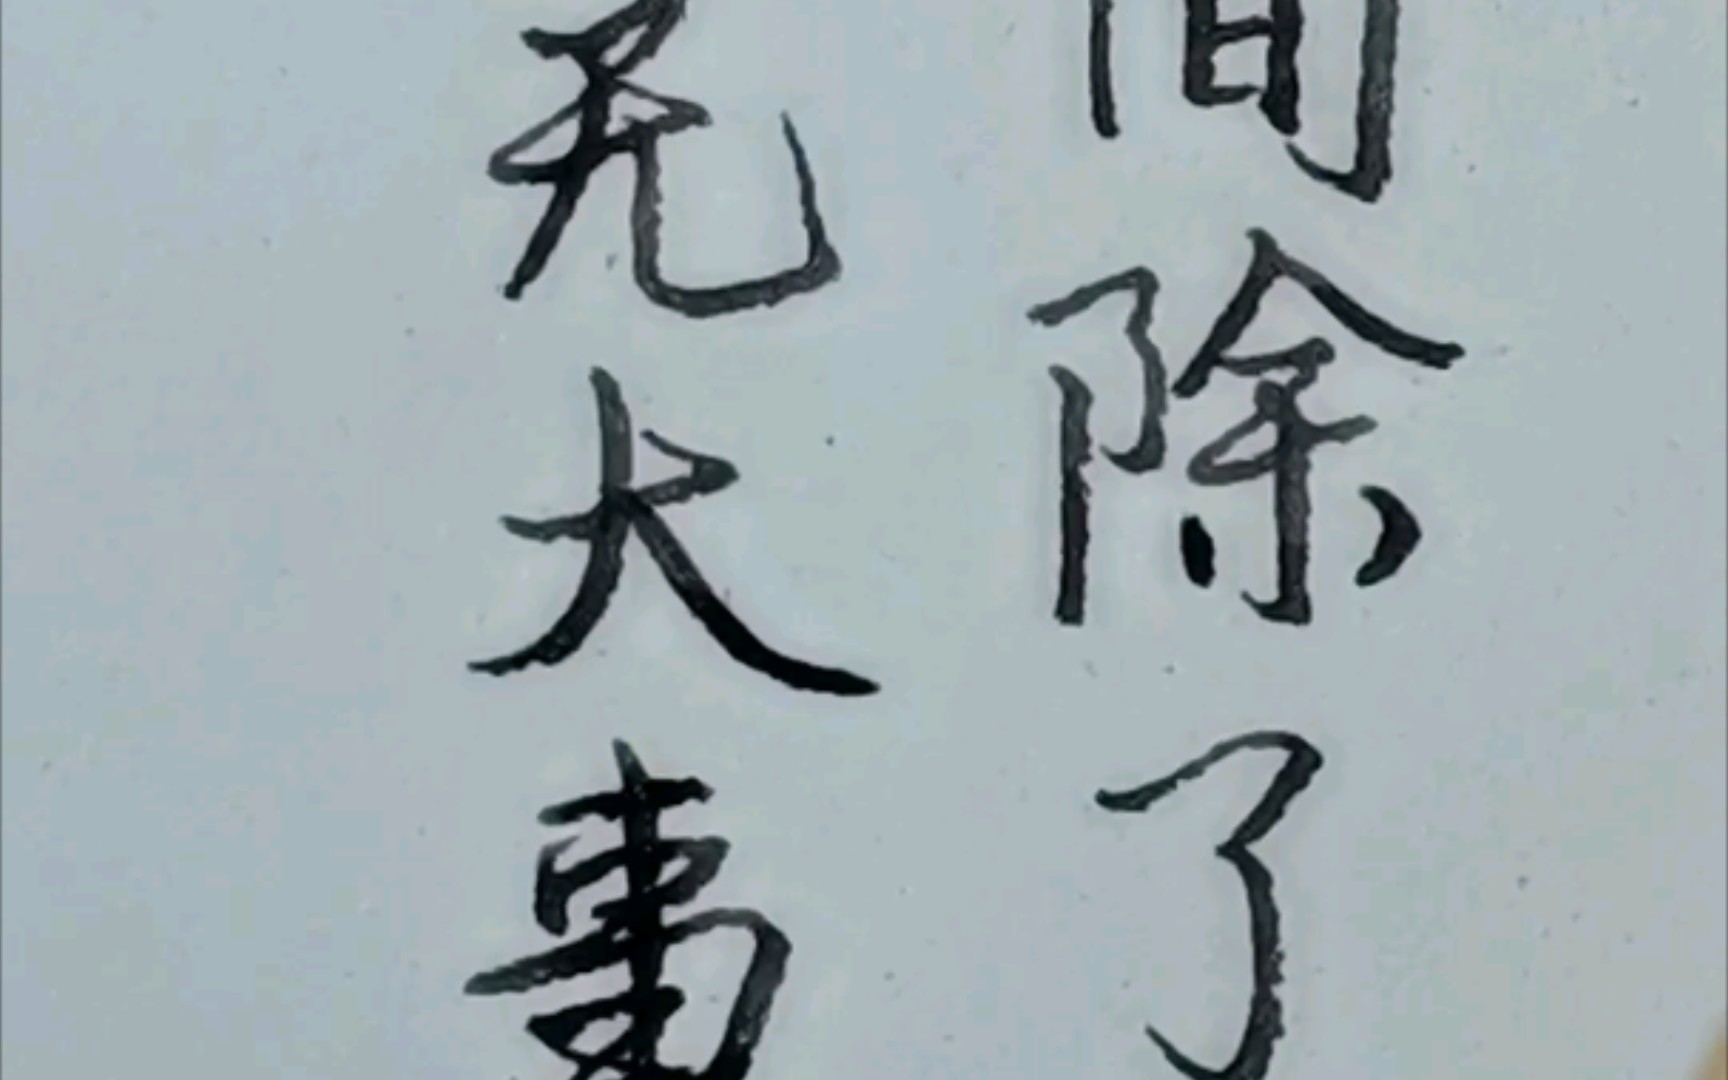 间除了
无大事